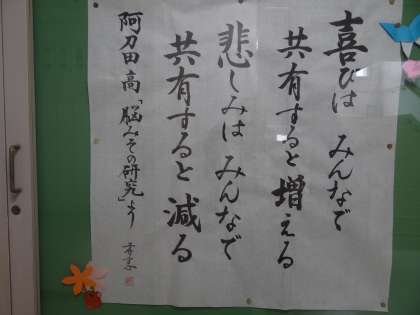 喜びは みんなで
共有すると増える
悲しみは みんなで
共有すると減る
阿刀田 高「脳みその研究」より